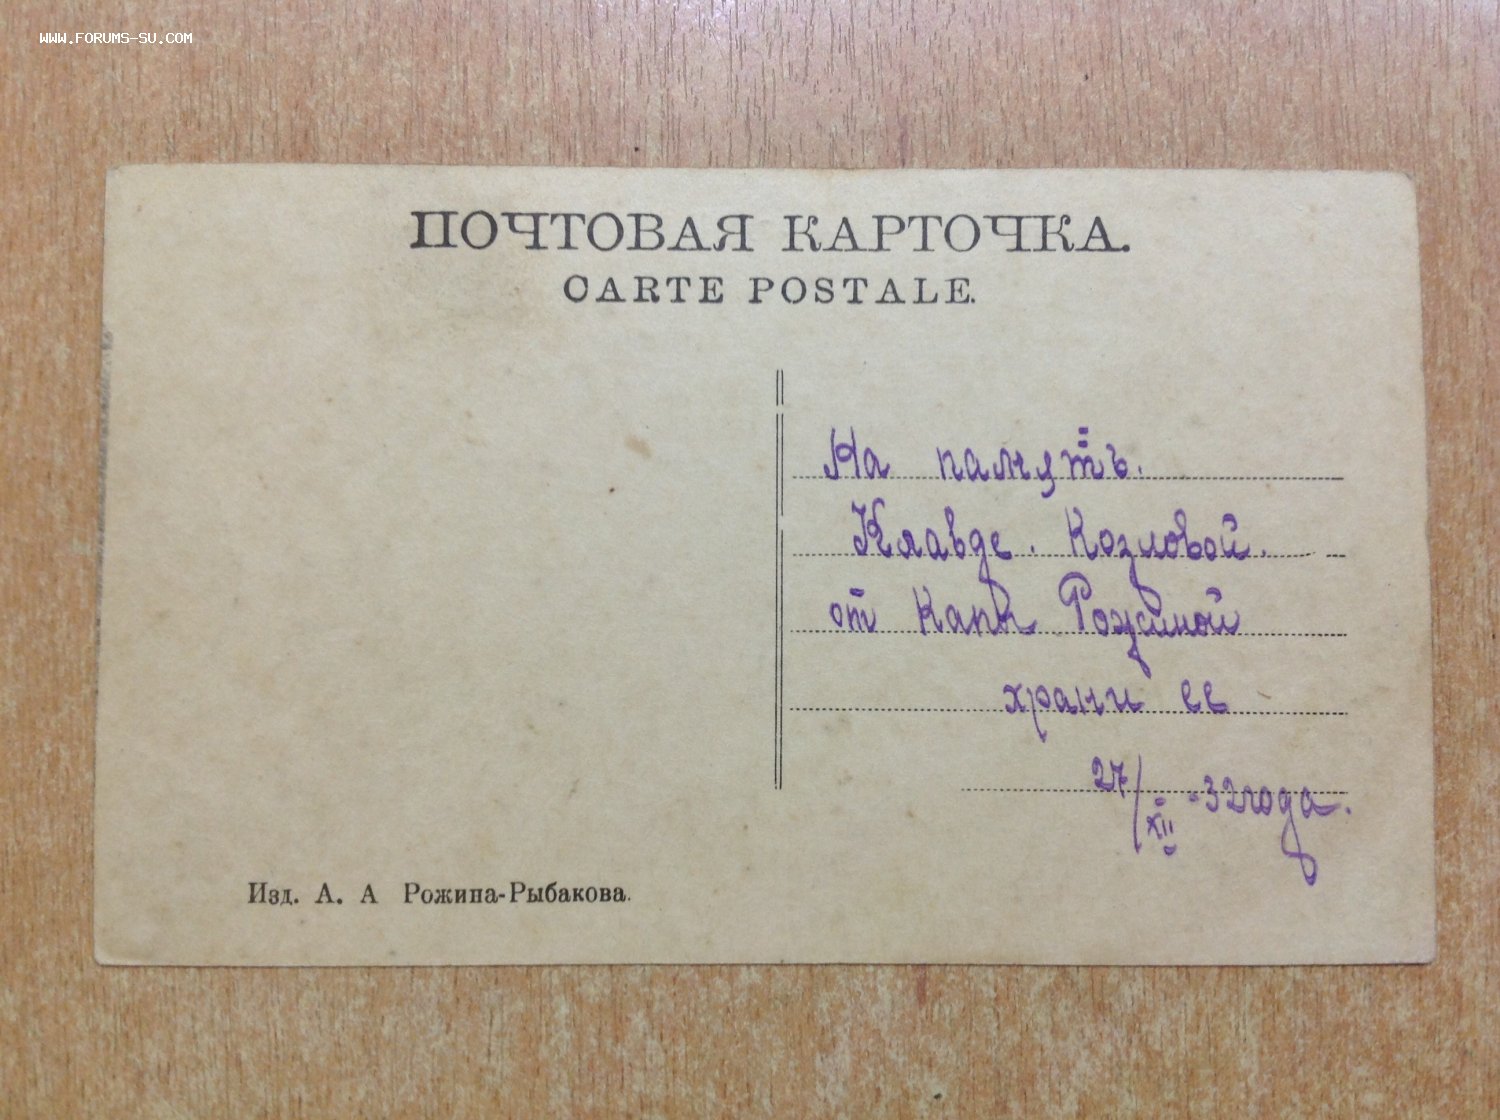 WWW.FORUMS-SU.COM
ПОЧТОВАЯ КАРТОЧКА.
CARTE POSTALE.
На память.
Клавде. Козловой.
от Капы Рожиной
храни ее
27/XII-32 года.
Изд. А. А Рожина-Рыбакова.